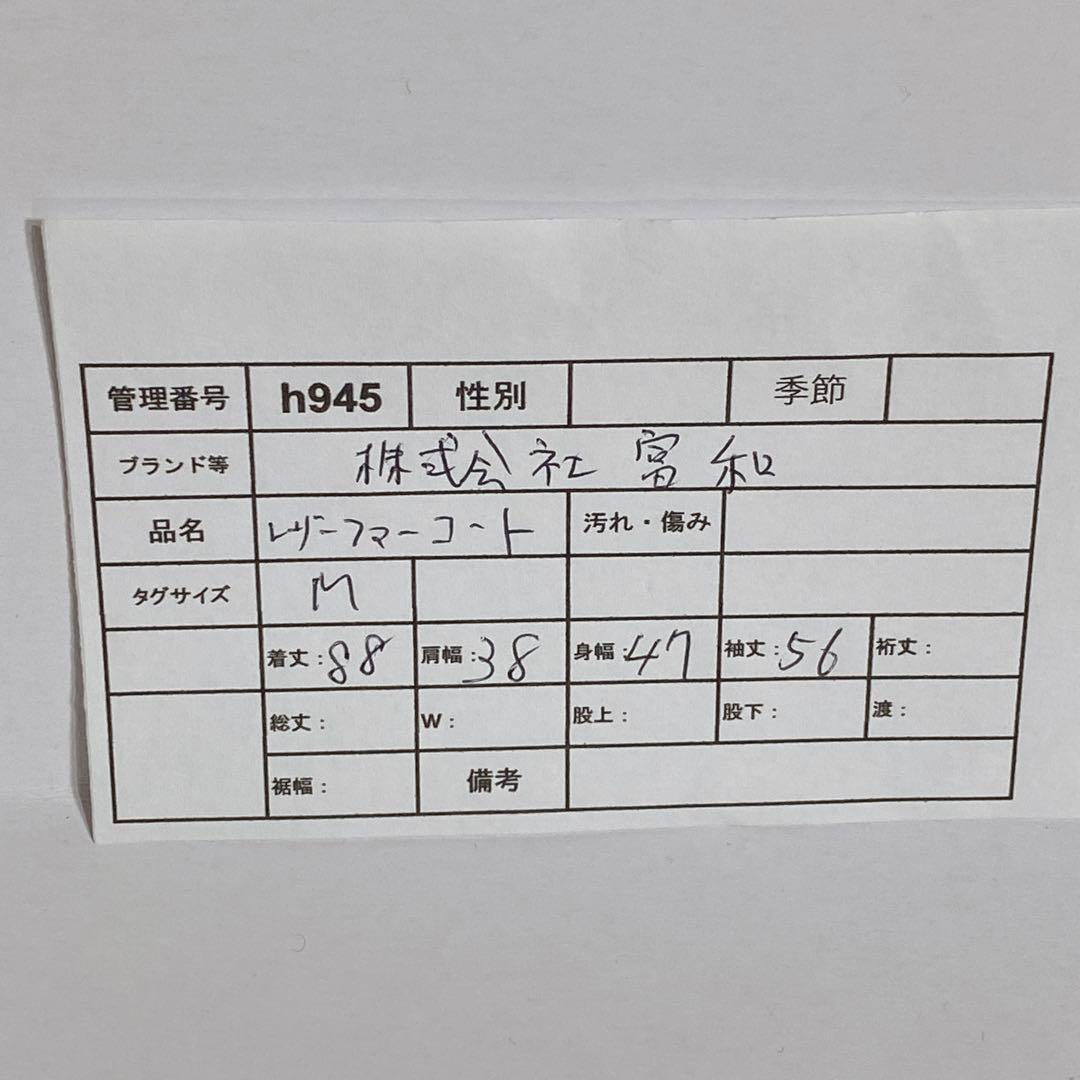 管理番号 h945 性別 季節
ブランド等 株式会社 富和
品名 レザーファーコート 汚れ・傷み
タグサイズ M
着丈:88 肩幅:38 身幅:47 袖丈:56 裄丈:
総丈: W: 股上: 股下: 渡:
裾幅: 備考